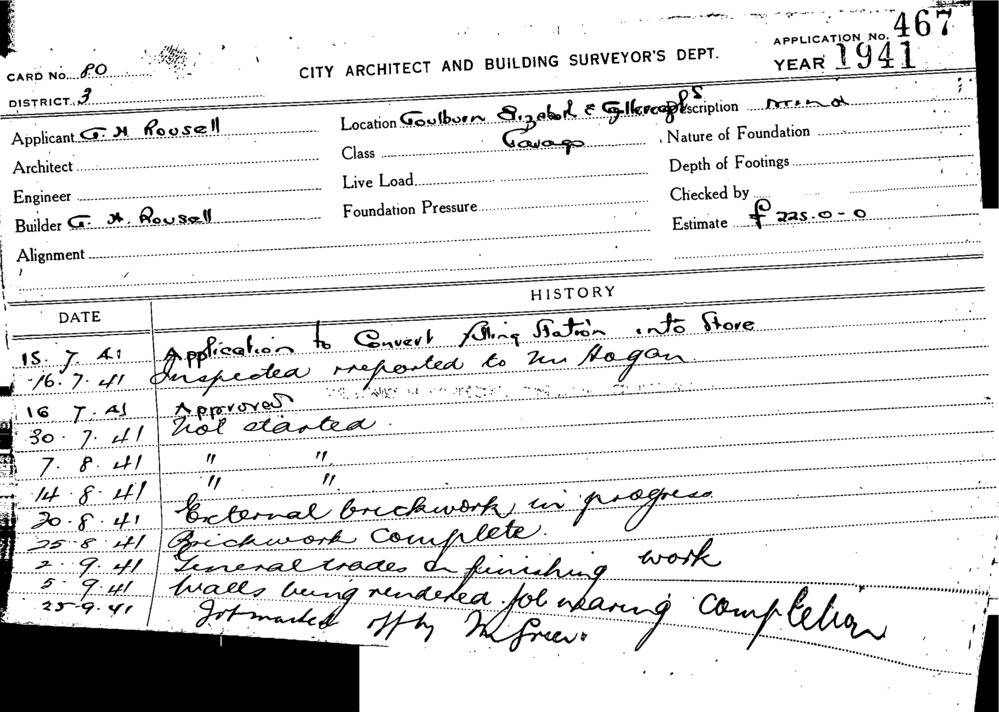 APPLICATION No. 467
CARD No. 80
CITY ARCHITECT AND BUILDING SURVEYOR'S DEPT.
YEAR 1941
DISTRICT 3
Applicant G. H. Rousell
Location Goulburn Elizabeth &
Description
Architect
Class
Nature of Foundation
Engineer
Live Load
Depth of Footings
Builder G. H. Rousell
Foundation Pressure
Checked by
Estimate £ 225-0-0
Alignment
DATE HISTORY
15. 7. 41 Application to Convert filling Station into Store
16. 7. 41 Inspected & reported to Mr Hogan
16 7. 41 Approved
30. 7. 41 Not started.
7. 8. 41 " "
14. 8. 41 " "
20. 8. 41 External brickwork in progress
25-8. 41 Brickwork Complete.
2. 9. 41 General trades on finishing work
5. 9. 41 Walls being rendered job nearing completion
25-9. 41 Job marked off by Mr Green.